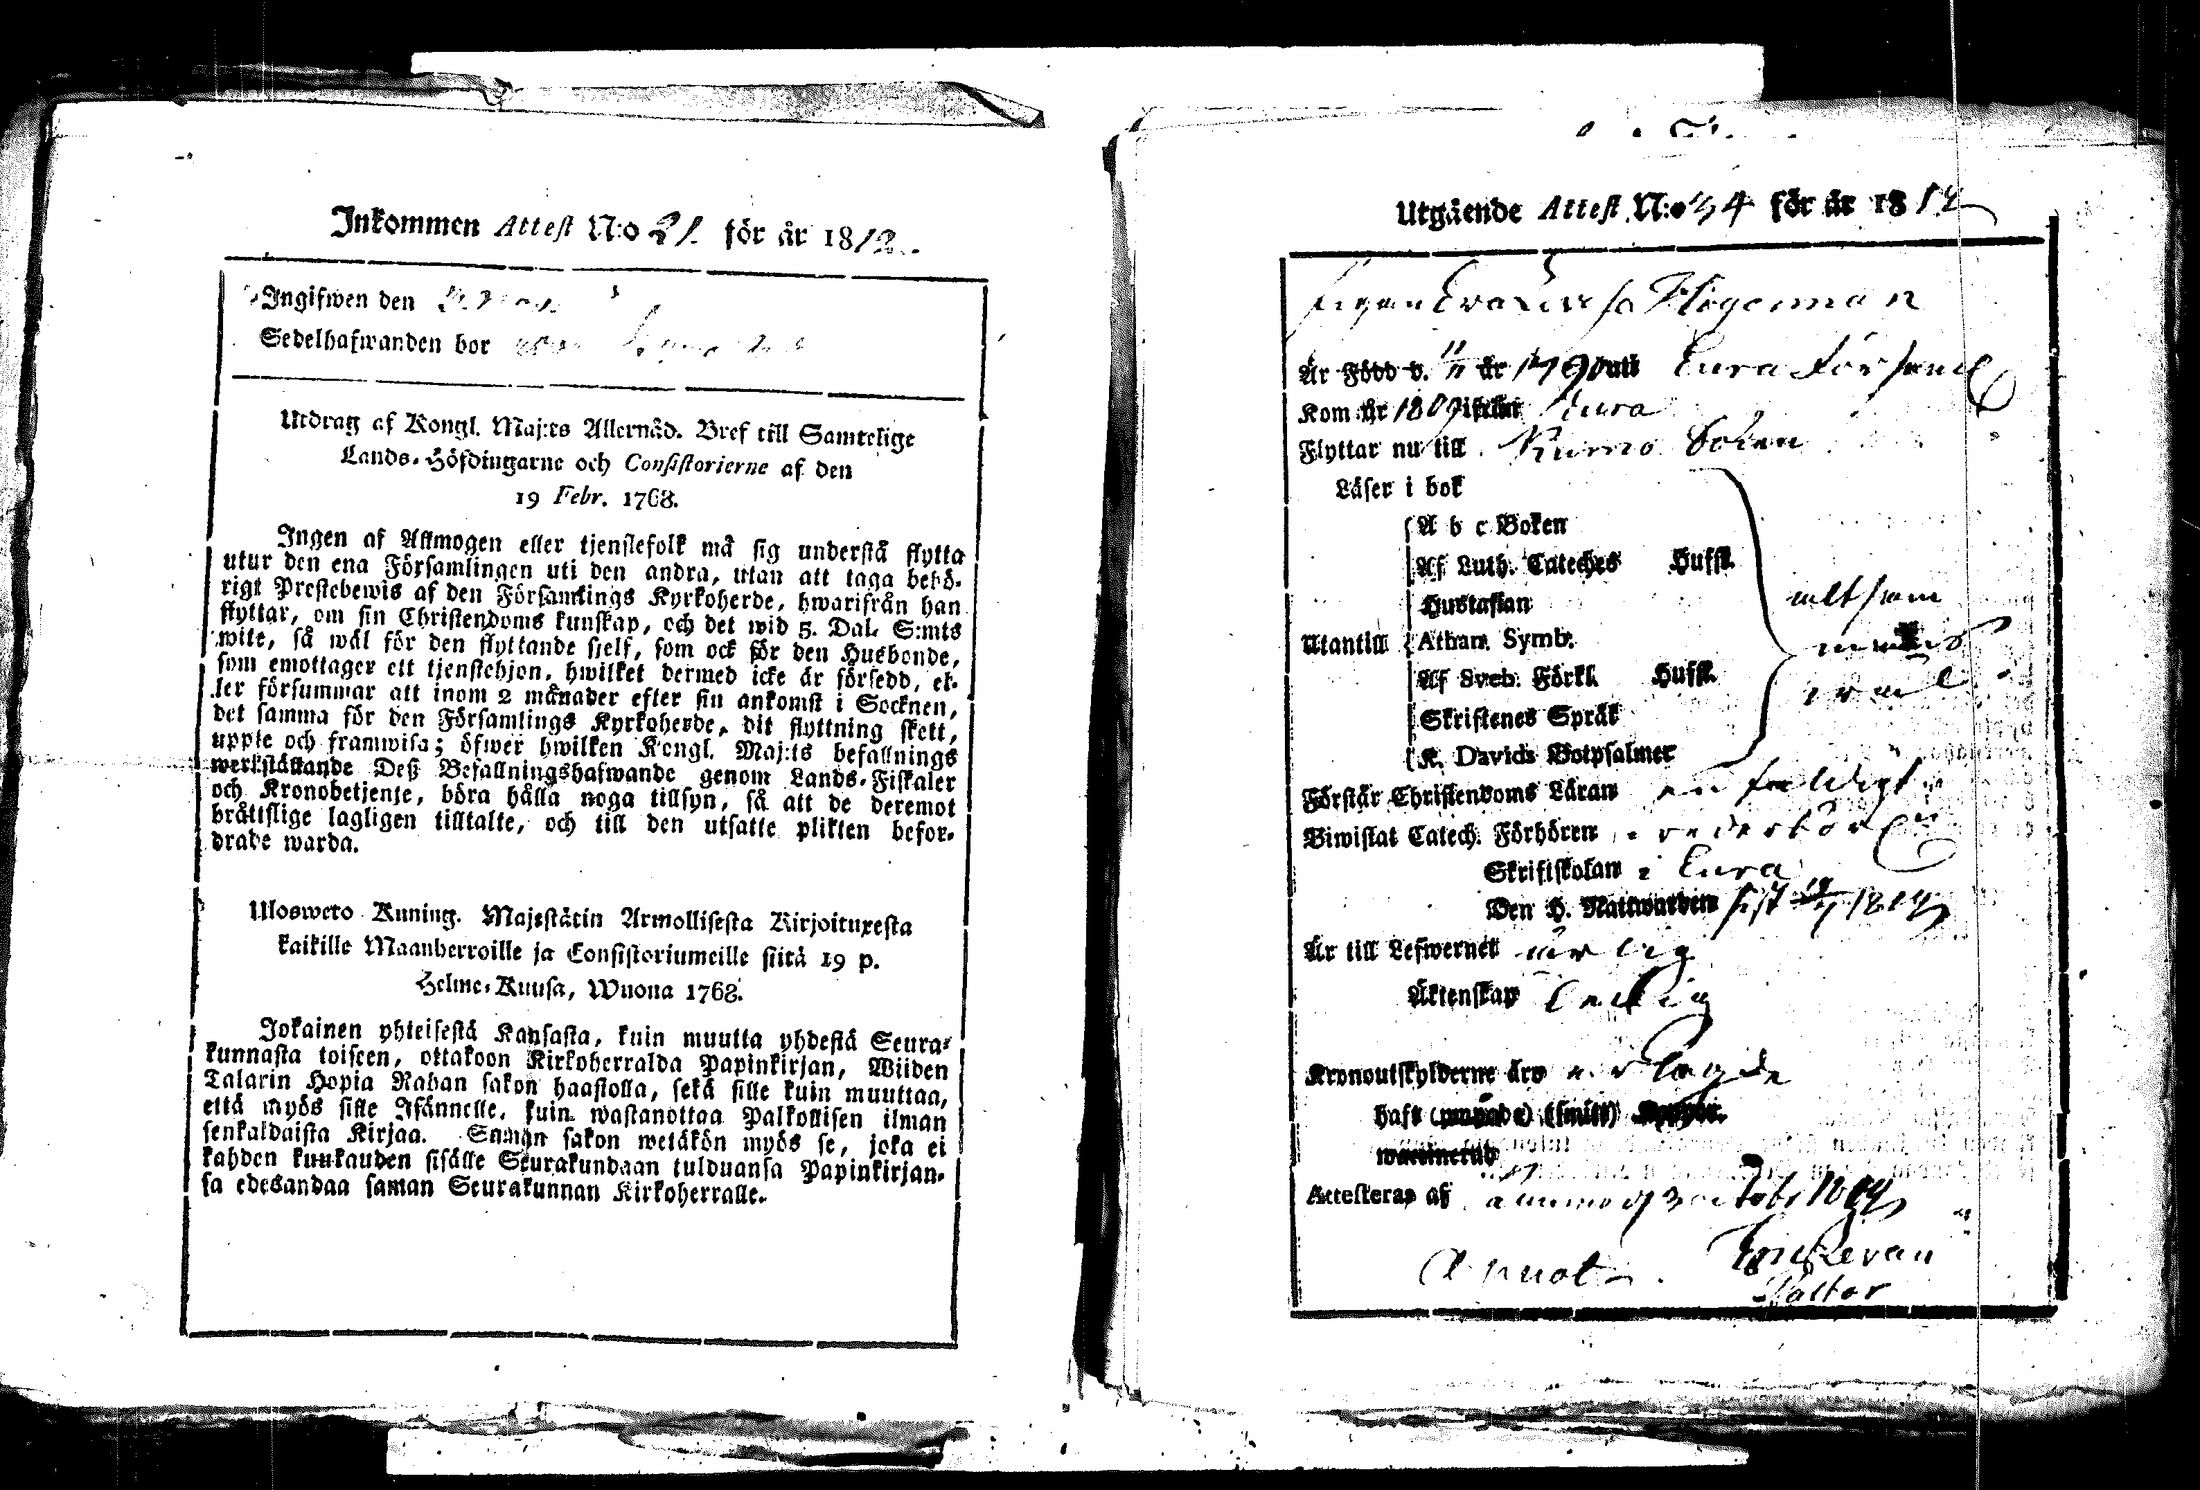 Inkommen Attest N:o 21. för år 1812.
Ingifwen den
Sedelhafwanden bor
Utdrag af Kongl. Maj:ts Allernåd. Bref till Samtelige
Lands-Höfdingarne och Consistorierne af den
19 Febr. 1768.
Ingen af Allmogen eller tjenstefolk må sig understå flytta
utur den ena Församlingen uti den andra, utan att taga behö-
rigt Prestebewis af den Församlings Kyrkoherde, hwarifrån han
flyttar, om sin Christendoms kunskap, och det wid 5. Dal. S:mts
wite, så wäl för den flyttande sjelf, som ock för den Husbonde,
som emottager ett tjenstehjon, hwilket dermed icke är försedd, el-
ler försummar att inom 2 månader efter sin ankomst i Socknen,
det samma för den Församlings Kyrkoherde, dit flyttning skett,
uppte och framwisa; öfwer hwilken Kongl. Maj:ts befallnings
werkställande Deß Befallningshafwande genom Lands-Fiskaler
och Kronobetjente, böra hålla noga tillsyn, så att de deremot
bråttslige lagligen tilltalte, och till den utsatte plikten befor-
drade warda.
Ulosweto Kuning. Majestätin Armollisesta Kirjoituxesta
kaikille Maanherroille ja Consistoriumeille siitä 19 p.
Helme-Kuusa, Wuona 1768.
Jokainen yhteisestä Kansasta, kuin muutta yhdestä Seura-
kunnasta toiseen, ottakoon Kirkoherralda Papinkirjan, Wiiden
Talarin Hopia Rahan sakon haastolla, sekä sille kuin muuttaa,
että myös sille Isännelle, kuin wastanottaa Palkollisen ilman
senkaldaista Kirjaa. Saman sakon wetäkön myös se, joka ei
kahden kuukauden sisälle Seurakundaan tulduansa Papinkirjan-
sa edesandaa saman Seurakunnan Kirkoherralle.
Utgående Attest N:o 34 för år 1812
Pigan Eva Lovisa Hageman
Är Född d. 11/11 år 1790 uti Eura Församl
Kom år 1809 ifrån Eura
Flyttar nu till Kumo Socken
Läser i bok
A b c Boken
Af Luth. Cateches Hufst.
Hustaflan
Utantill Athan. Symb.
Af Sveb. Förkl. Hufst.
Skriftenes Språk
K. Davids Botpsalmer
allt som
Förstår Christendoms Läran enfaldigt
Biwistat Catech. Förhören vederbörl
Skriftskolan i Eura
Den H. Nattwarden sist
Är till Lefwernet ärlig
Äktenskap ledig
Kronoutskylderne äro erlagde
haft
Attesteras af
Pastor